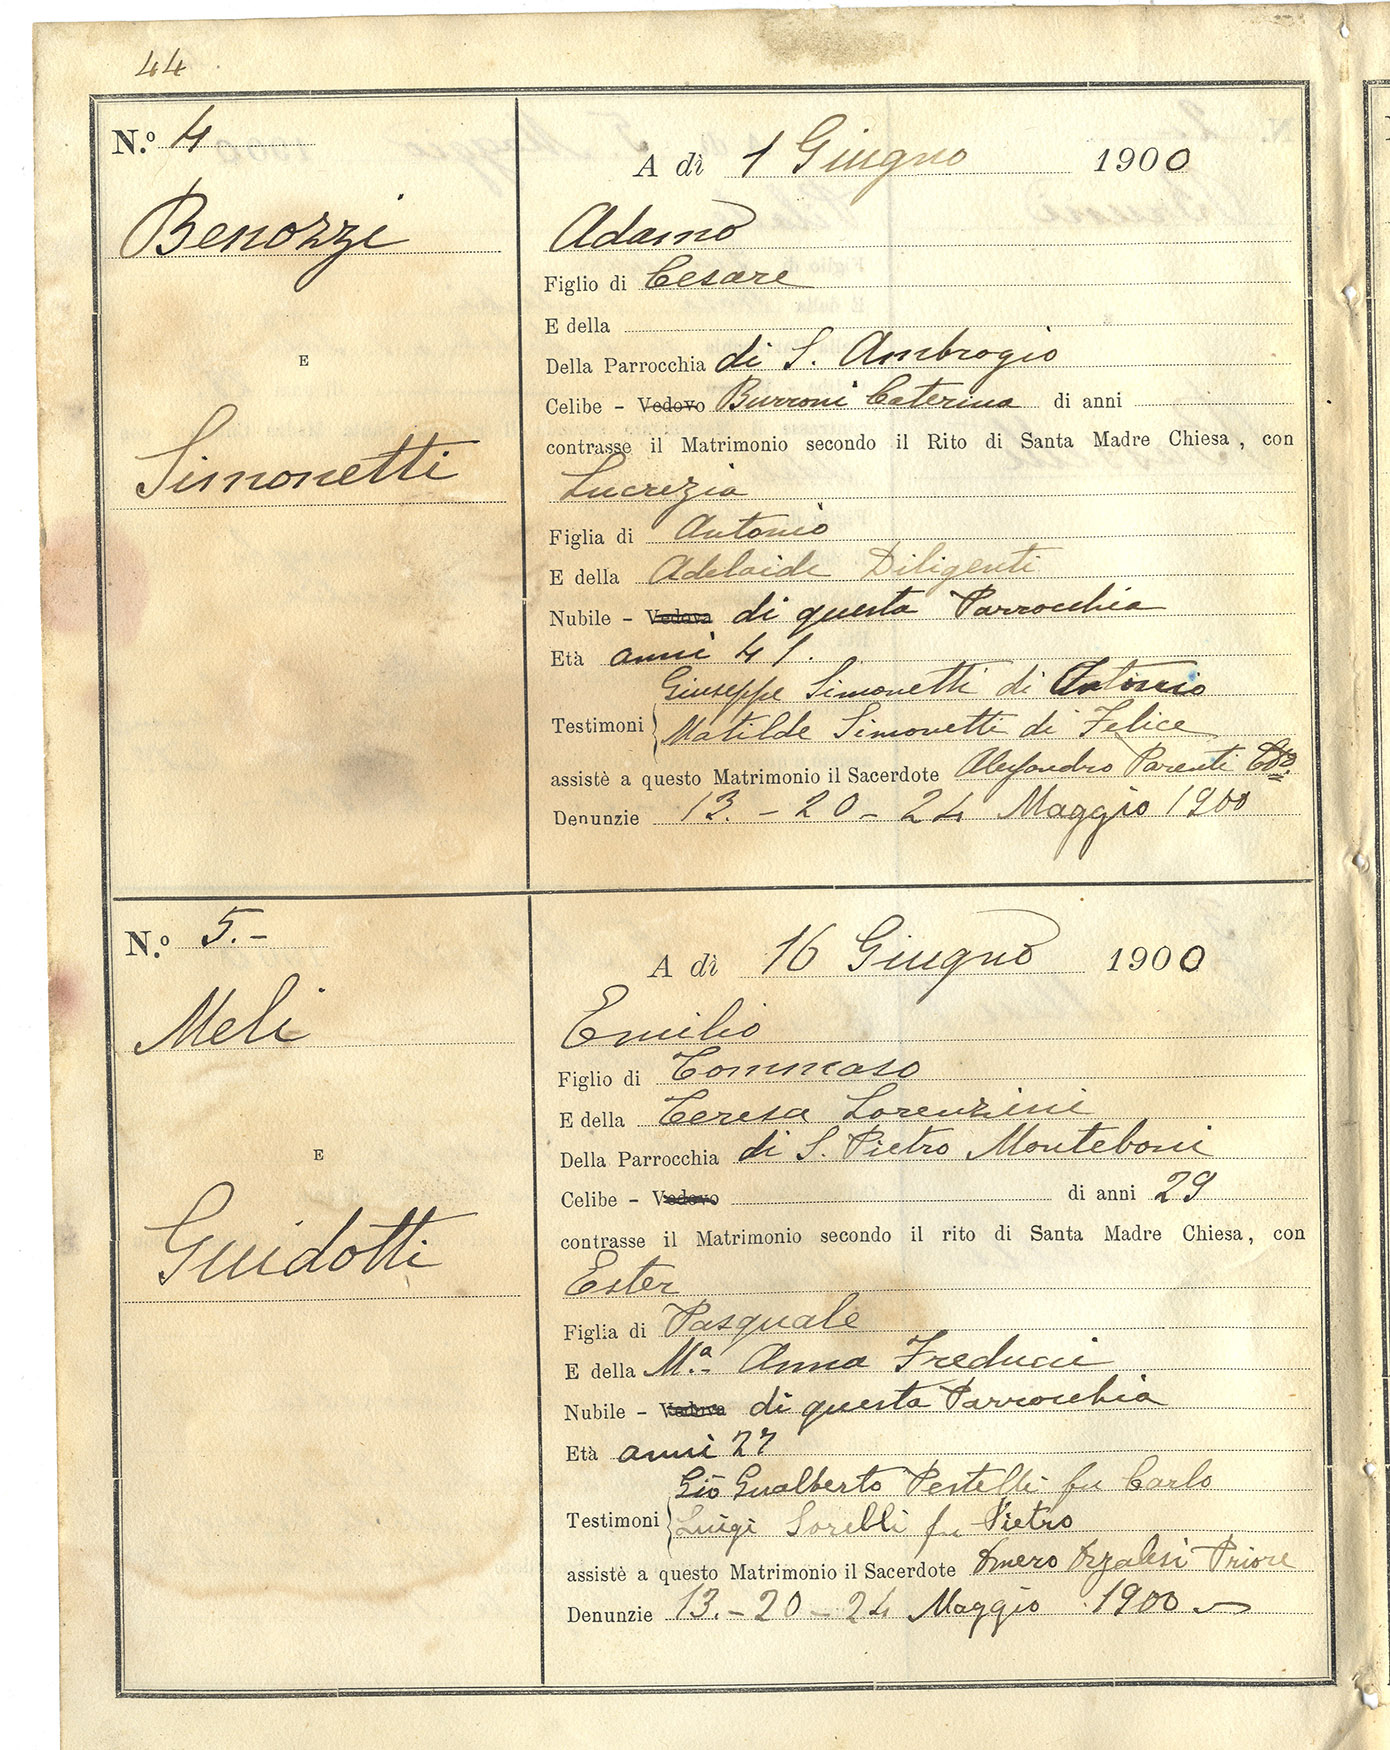 44
N.º 4
A dì 1 Giugno 1900
Benozzi
Adamo
Figlio di Cesare
E della
E
Della Parrocchia di S. Ambrogio
Celibe - Vedovo Burroni Caterina di anni
contrasse il Matrimonio secondo il Rito di Santa Madre Chiesa, con
Simonetti
Lucrezia
Figlia di Antonio
E della Adelaide Diligenti
Nubile - Vedova di questa Parrocchia
Età anni 41.
Giuseppe Simonetti di Antonio
Testimoni
Matilde Simonetti di Felice
assistè a questo Matrimonio il Sacerdote Alessandro Parenti
Denunzie 13. - 20 - 24 Maggio 1900
N.º 5.-
A dì 16 Giugno 1900
Meli
Emilio
Figlio di Tommaso
E della Teresa Lorenzini
E
Della Parrocchia di S. Pietro Monteboni
Celibe - Vedovo di anni 29
contrasse il Matrimonio secondo il rito di Santa Madre Chiesa, con
Guidotti
Ester
Figlia di Pasquale
E della M.ª Anna Freducci
Nubile - Vedova di questa Parrocchia
Età anni 27
Gio Gualberto Pestelli fu Carlo
Testimoni
Luigi Sorelli fu Pietro
assistè a questo Matrimonio il Sacerdote Omero Orzalesi Priore
Denunzie 13. - 20 - 24 Maggio 1900